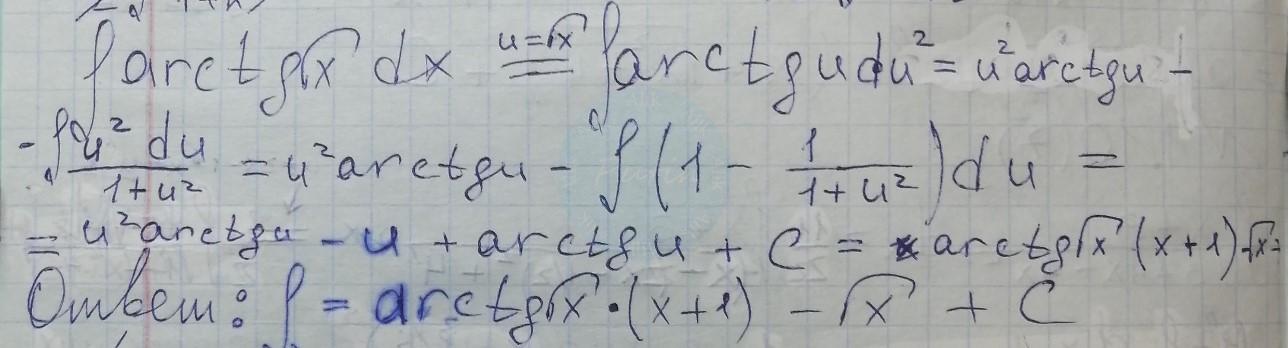 ∫ arctg√x dx =^{u=√x} ∫ arctg u du² = u² arctg u -
- ∫ u² du / (1+u²) = u² arctg u - ∫ (1 - 1/(1+u²)) du =
= u² arctg u - u + arctg u + C = arctg√x (x+1) √x
Ответ: ∫ = arctg√x · (x+1) - √x + C